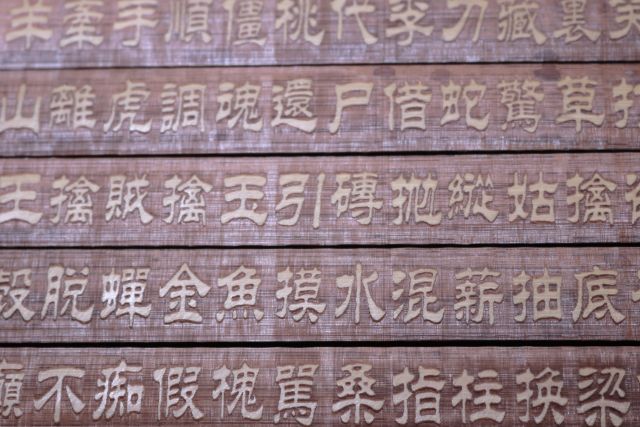 裏藏刀李代桃僵順手牽羊
草驚蛇借尸還魂調虎離山
擒姑縱拋磚引玉擒賊擒王
底抽薪混水摸魚金蟬脫殼
梁換柱指桑罵槐假痴不